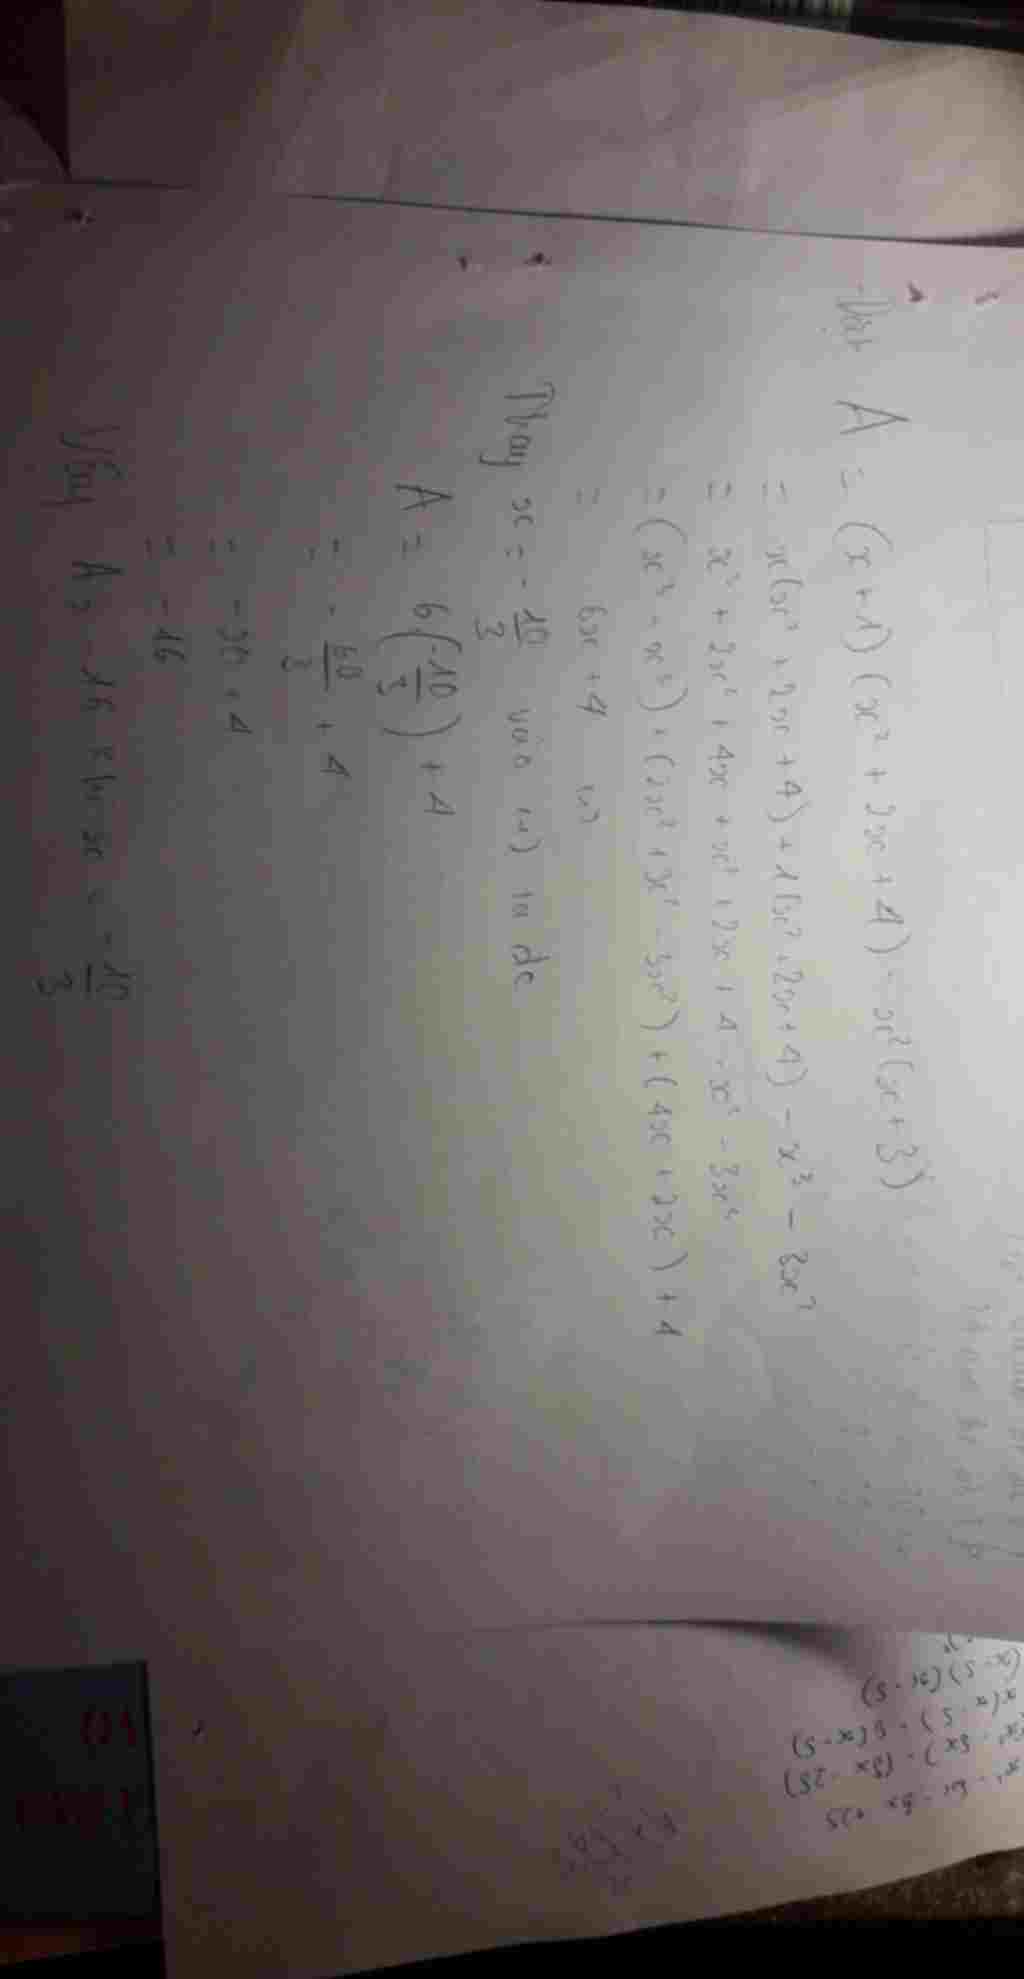 Đặt A = (x+1)(x² + 2x + 4) - x²(x+3)
= x(x² + 2x + 4) + 1(x² + 2x + 4) - x³ - 3x²
= x³ + 2x² + 4x + x² + 2x + 4 - x³ - 3x²
= (x³ - x³) + (2x² + x² - 3x²) + (4x + 2x) + 4
= 6x + 4
Thay x = - 10/3 vào (*) ta đc
A = 6(-10/3) + 4
= - 60/3 + 4
= -20 + 4
= -16
Vậy A = -16 khi x = - 10/3
(x-5)(x-5)
x(x-5) - 5(x-5)
- 5x) - (5x - 25)
x² - 5x - 5x + 25